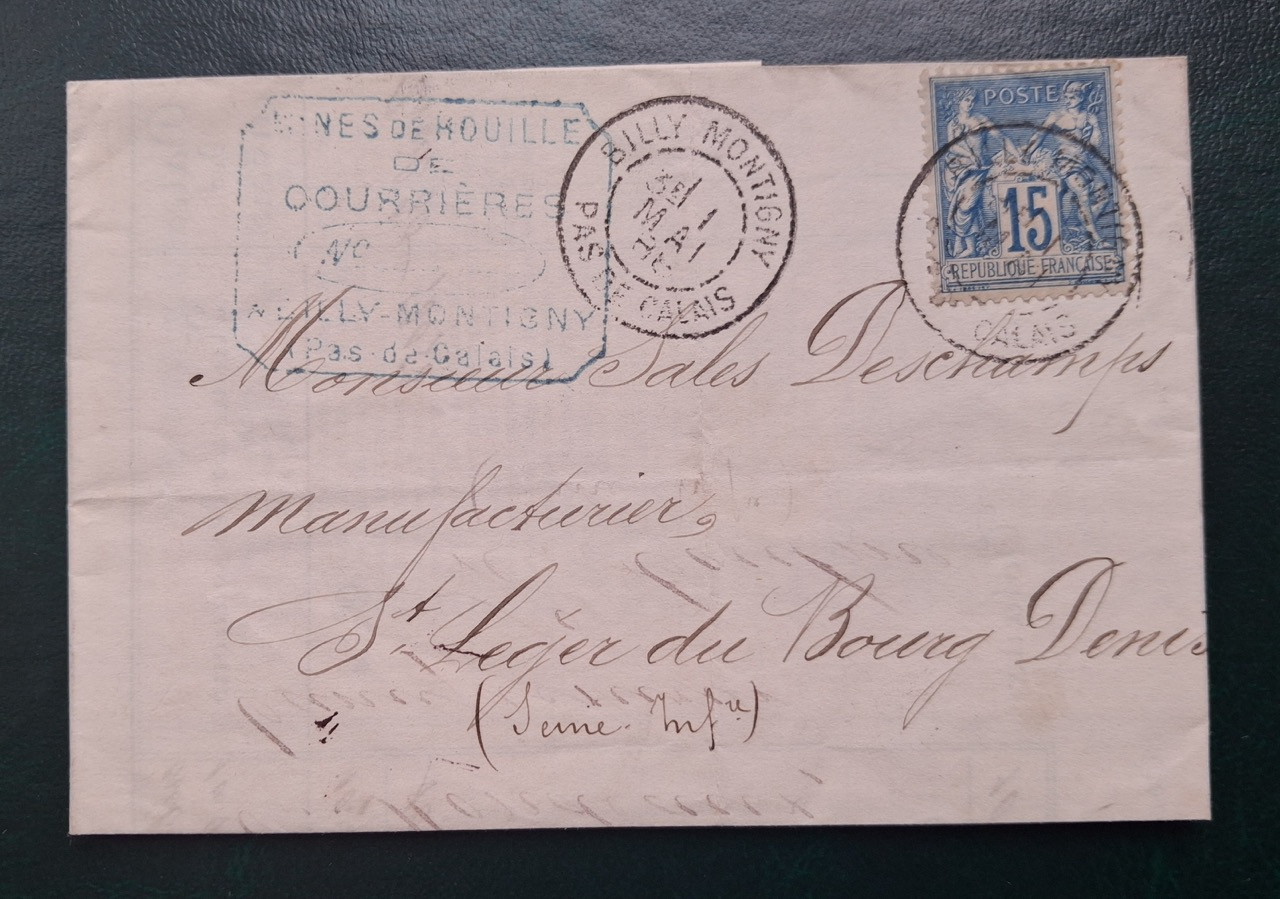 MINES DE HOUILLE
DE
COURRIÈRES
No
A BILLY-MONTIGNY
(Pas-de-Calais)
BILLY MONTIGNY
MAI
PAS DE CALAIS
POSTE
15
REPUBLIQUE FRANÇAISE
CALAIS
Monsieur Sales Deschamps
Manufacturier
St Léger du Bourg Denis
(Seine Infre)